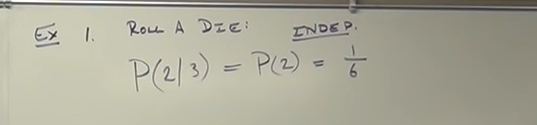 Ex 1. ROLL A DIE: INDEP.
P(2/3) = P(2) = 1/6